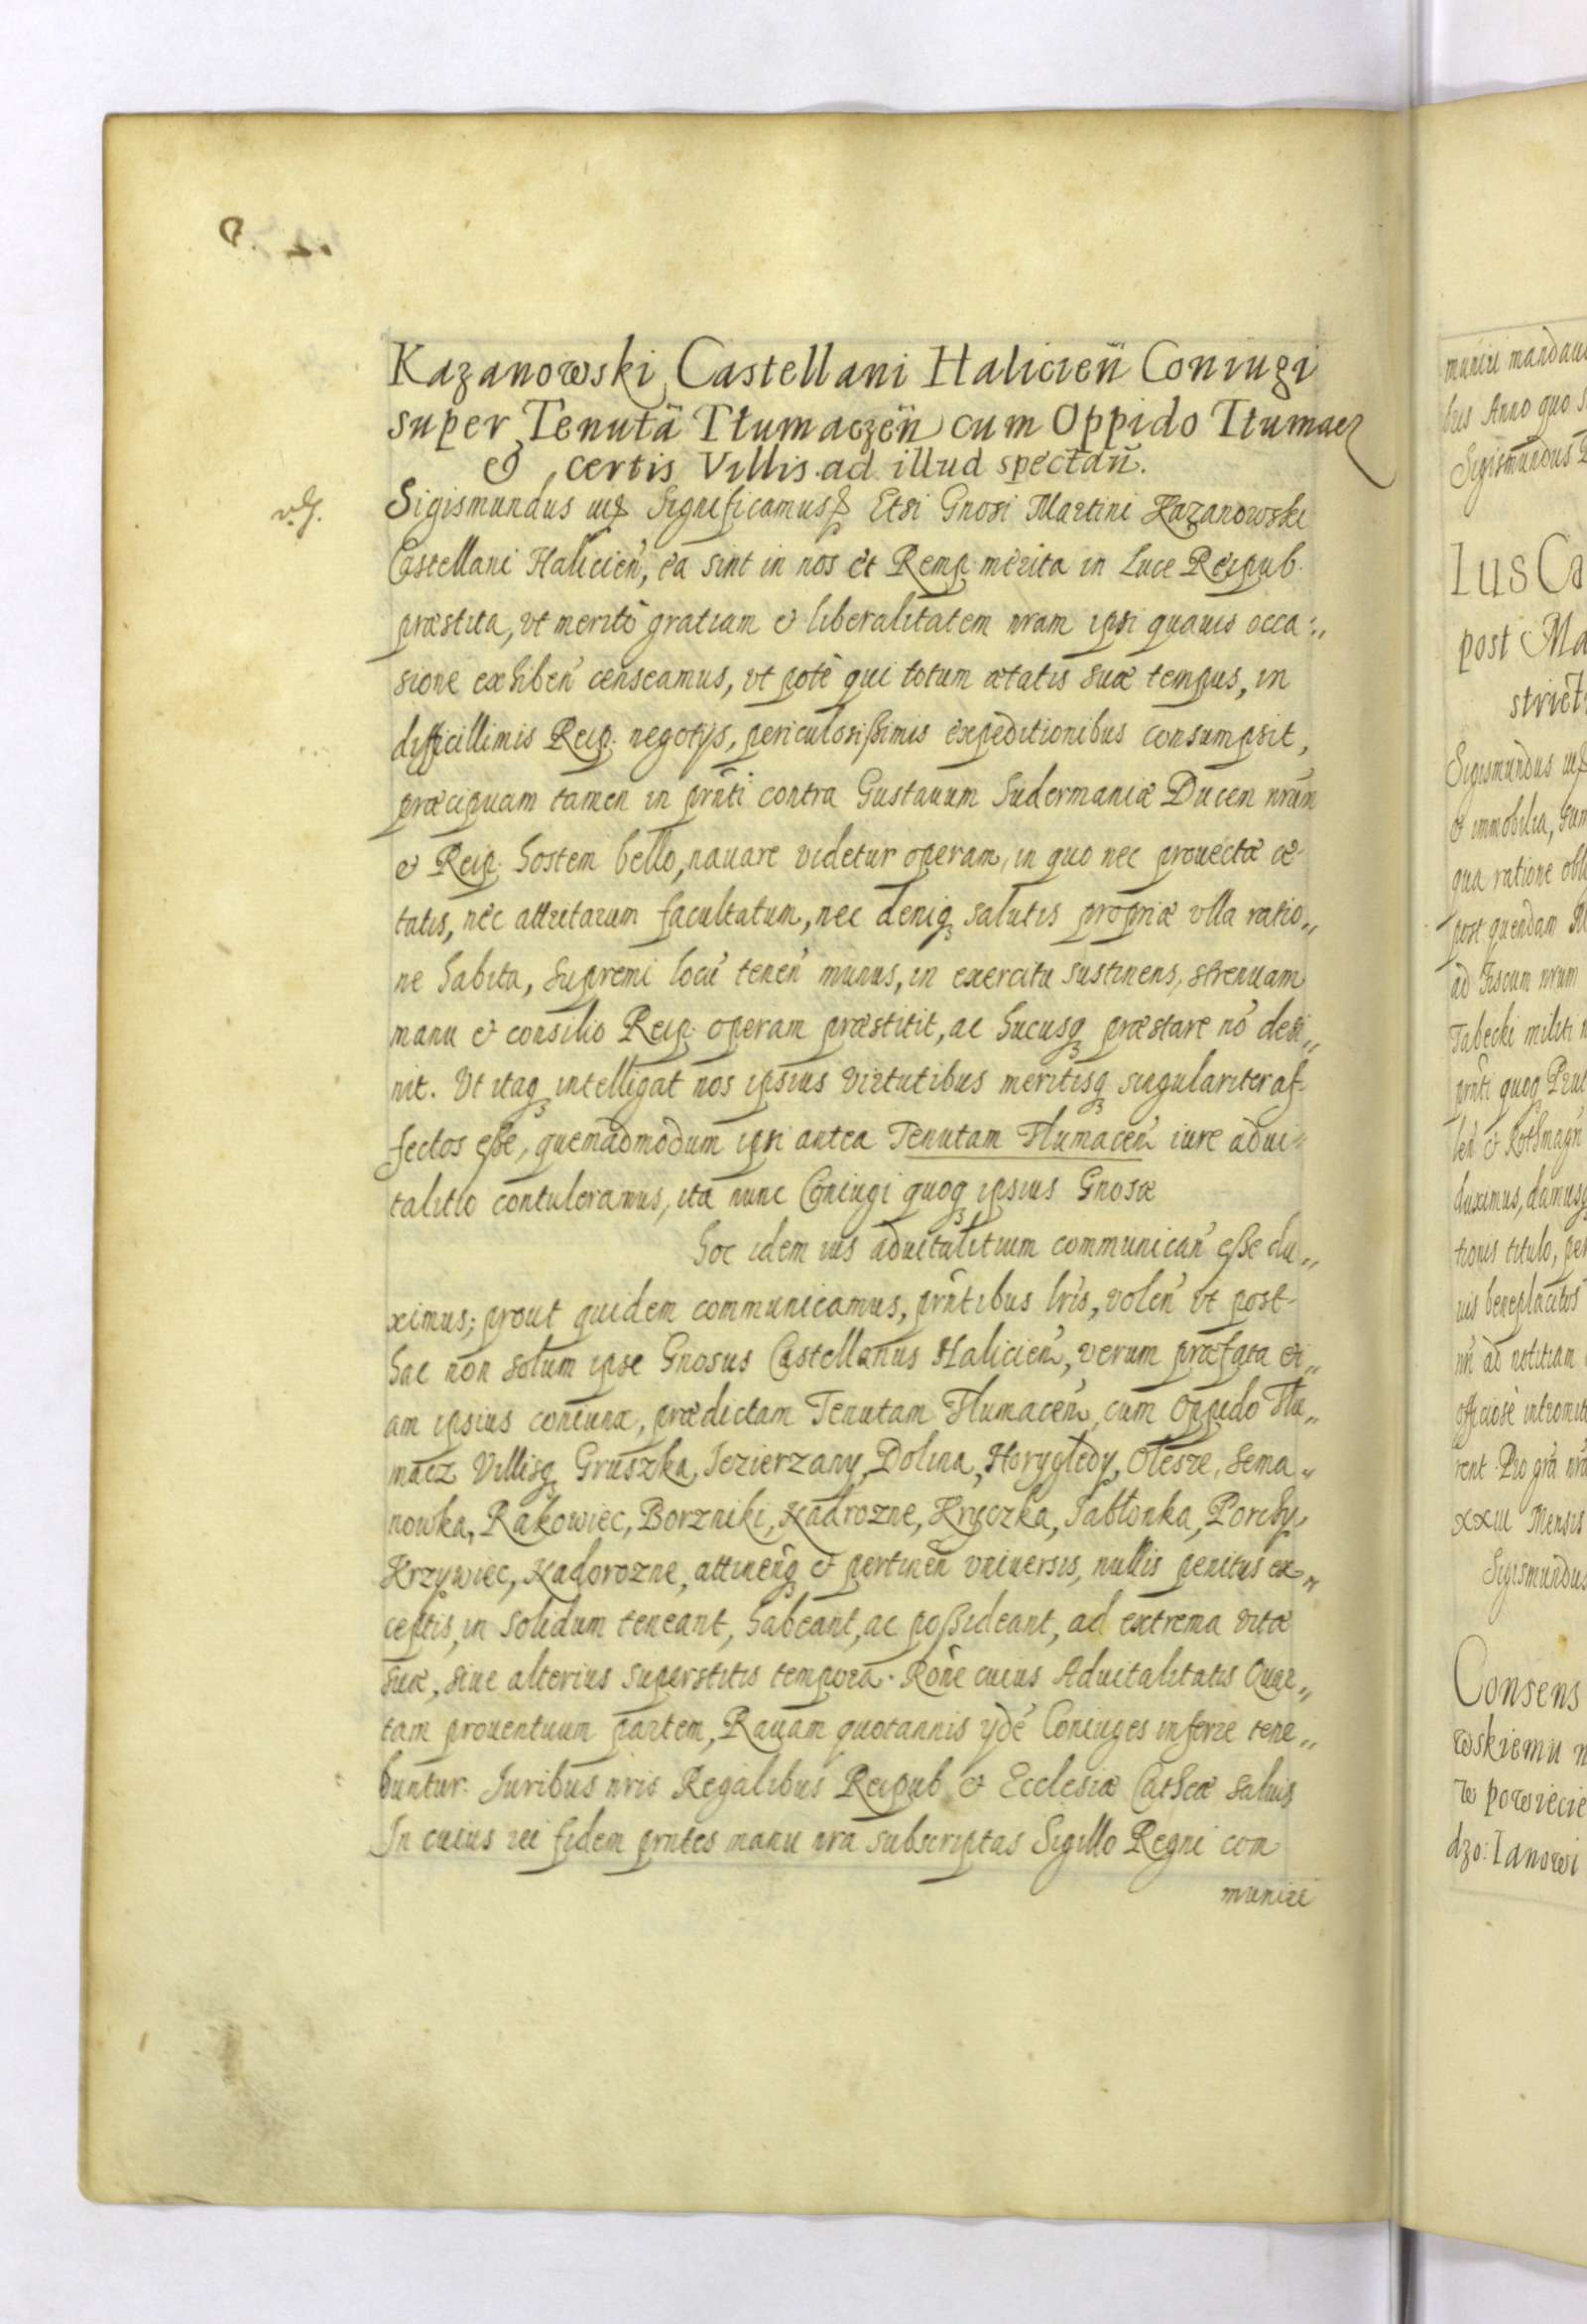 Kazanowski Castellani Halicien̄ Coniugi
super Tenutā Tłumaczen̄ cum Oppido Tłumacz
& certis Villis ad illud spectan̄.
Sigismundus III Significamus Etsi Gnosi Martini Kazanowski
Castellani Halicien̄, ea sint in nos et Remp. merita in Luce Reipub.
præstita, vt meritò gratiam & liberalitatem nram ipsi quauis occa
sione exhiben̄ censeamus, vt potè qui totum ætatis suæ tempus, in
difficillimis Reip. negotijs, periculosißimis expeditionibus consumpsit,
præcipuam tamen in prn̄ti contra Gustauum Sudermaniæ Ducem nrum
& Reip. hostem bello, nauare videtur operam, in quo nec prouectæ æ-
tatis, nec attritarum facultatum, nec deniq salutis propriæ vlla ratio
ne habita, Supremi locū tenen̄ munus, in exercitu sustinens, strenuam
manu & consilio Reip. operam præstitit, ac hucusq præstare nō desi
nit. Vt itaq intelligat nos ipsius virtutibus meritisq singulariter af-
fectos eße, quemadmodum ipsi antea Tenutam Tłumacen̄ iure adui
talitio contuleramus, ita nunc Coniugi quoq ipsius Gnosæ
hoc idem ius aduitalitium communican̄ eße du
ximus; prout quidem communicamus, prn̄tibus lris, volen̄ vt post-
hac non solum ipse Gnosus Castellanus Halicien̄, verum præfata et
am ipsius coniunx, prædictam Tenutam Tłumacen̄, cum Oppido Tłu
macz Villisq Gruszka, Iezierzany, Dolina, Horyględy, Olesze, Sema
nowka, Rakowiec, Borzniki, Hadrozne, Hryczka, Jabłonka, Porohy,
Krzywiec, Nadorozne, attinen̄q & pertinen̄ vniuersis, nullis penitus ex
ceptis, in solidum teneant, habeant, ac poßideant, ad extrema vitæ
suæ, siue alterius superstitis tempora. Rōne cuius Aduitalitatis Quar
tam prouentuum partem, Rauam quotannis ijdē Coniuges inferre tene
buntur. Juribus nris Regalibus Reipub. & Ecclesiæ Cathcæ saluis
In cuius rei fidem prntes manu nra subscriptas Sigillo Regni com
munire
muniri mandaui
bus Anno quo s
Sigismundus
Ius Ca
post Ma
strict
Sigismundus III
& immobilia, sum
qua ratione obl
post quendam
ad Fiscum nrum
Tabecki militi
prn̄ti quoq
len̄ & Rothmagn̄
duximus, damusq
tionis titulo, per
uis beneplacitos
nn̄ ad notitiam
officiosè intromit
rent. Pro grā nra
XXIII Mensis
Sigismundus
Consens
wskiemu n
w powiecie
dzo: Ianowi